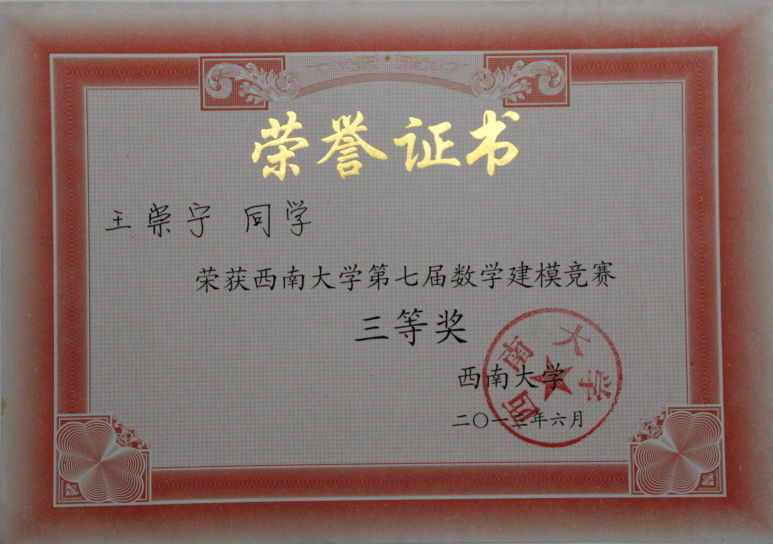 荣誉证书
王崇宁 同学
荣获西南大学第七届数学建模竞赛
三等奖
西南大学
二〇一三年六月
西南大学